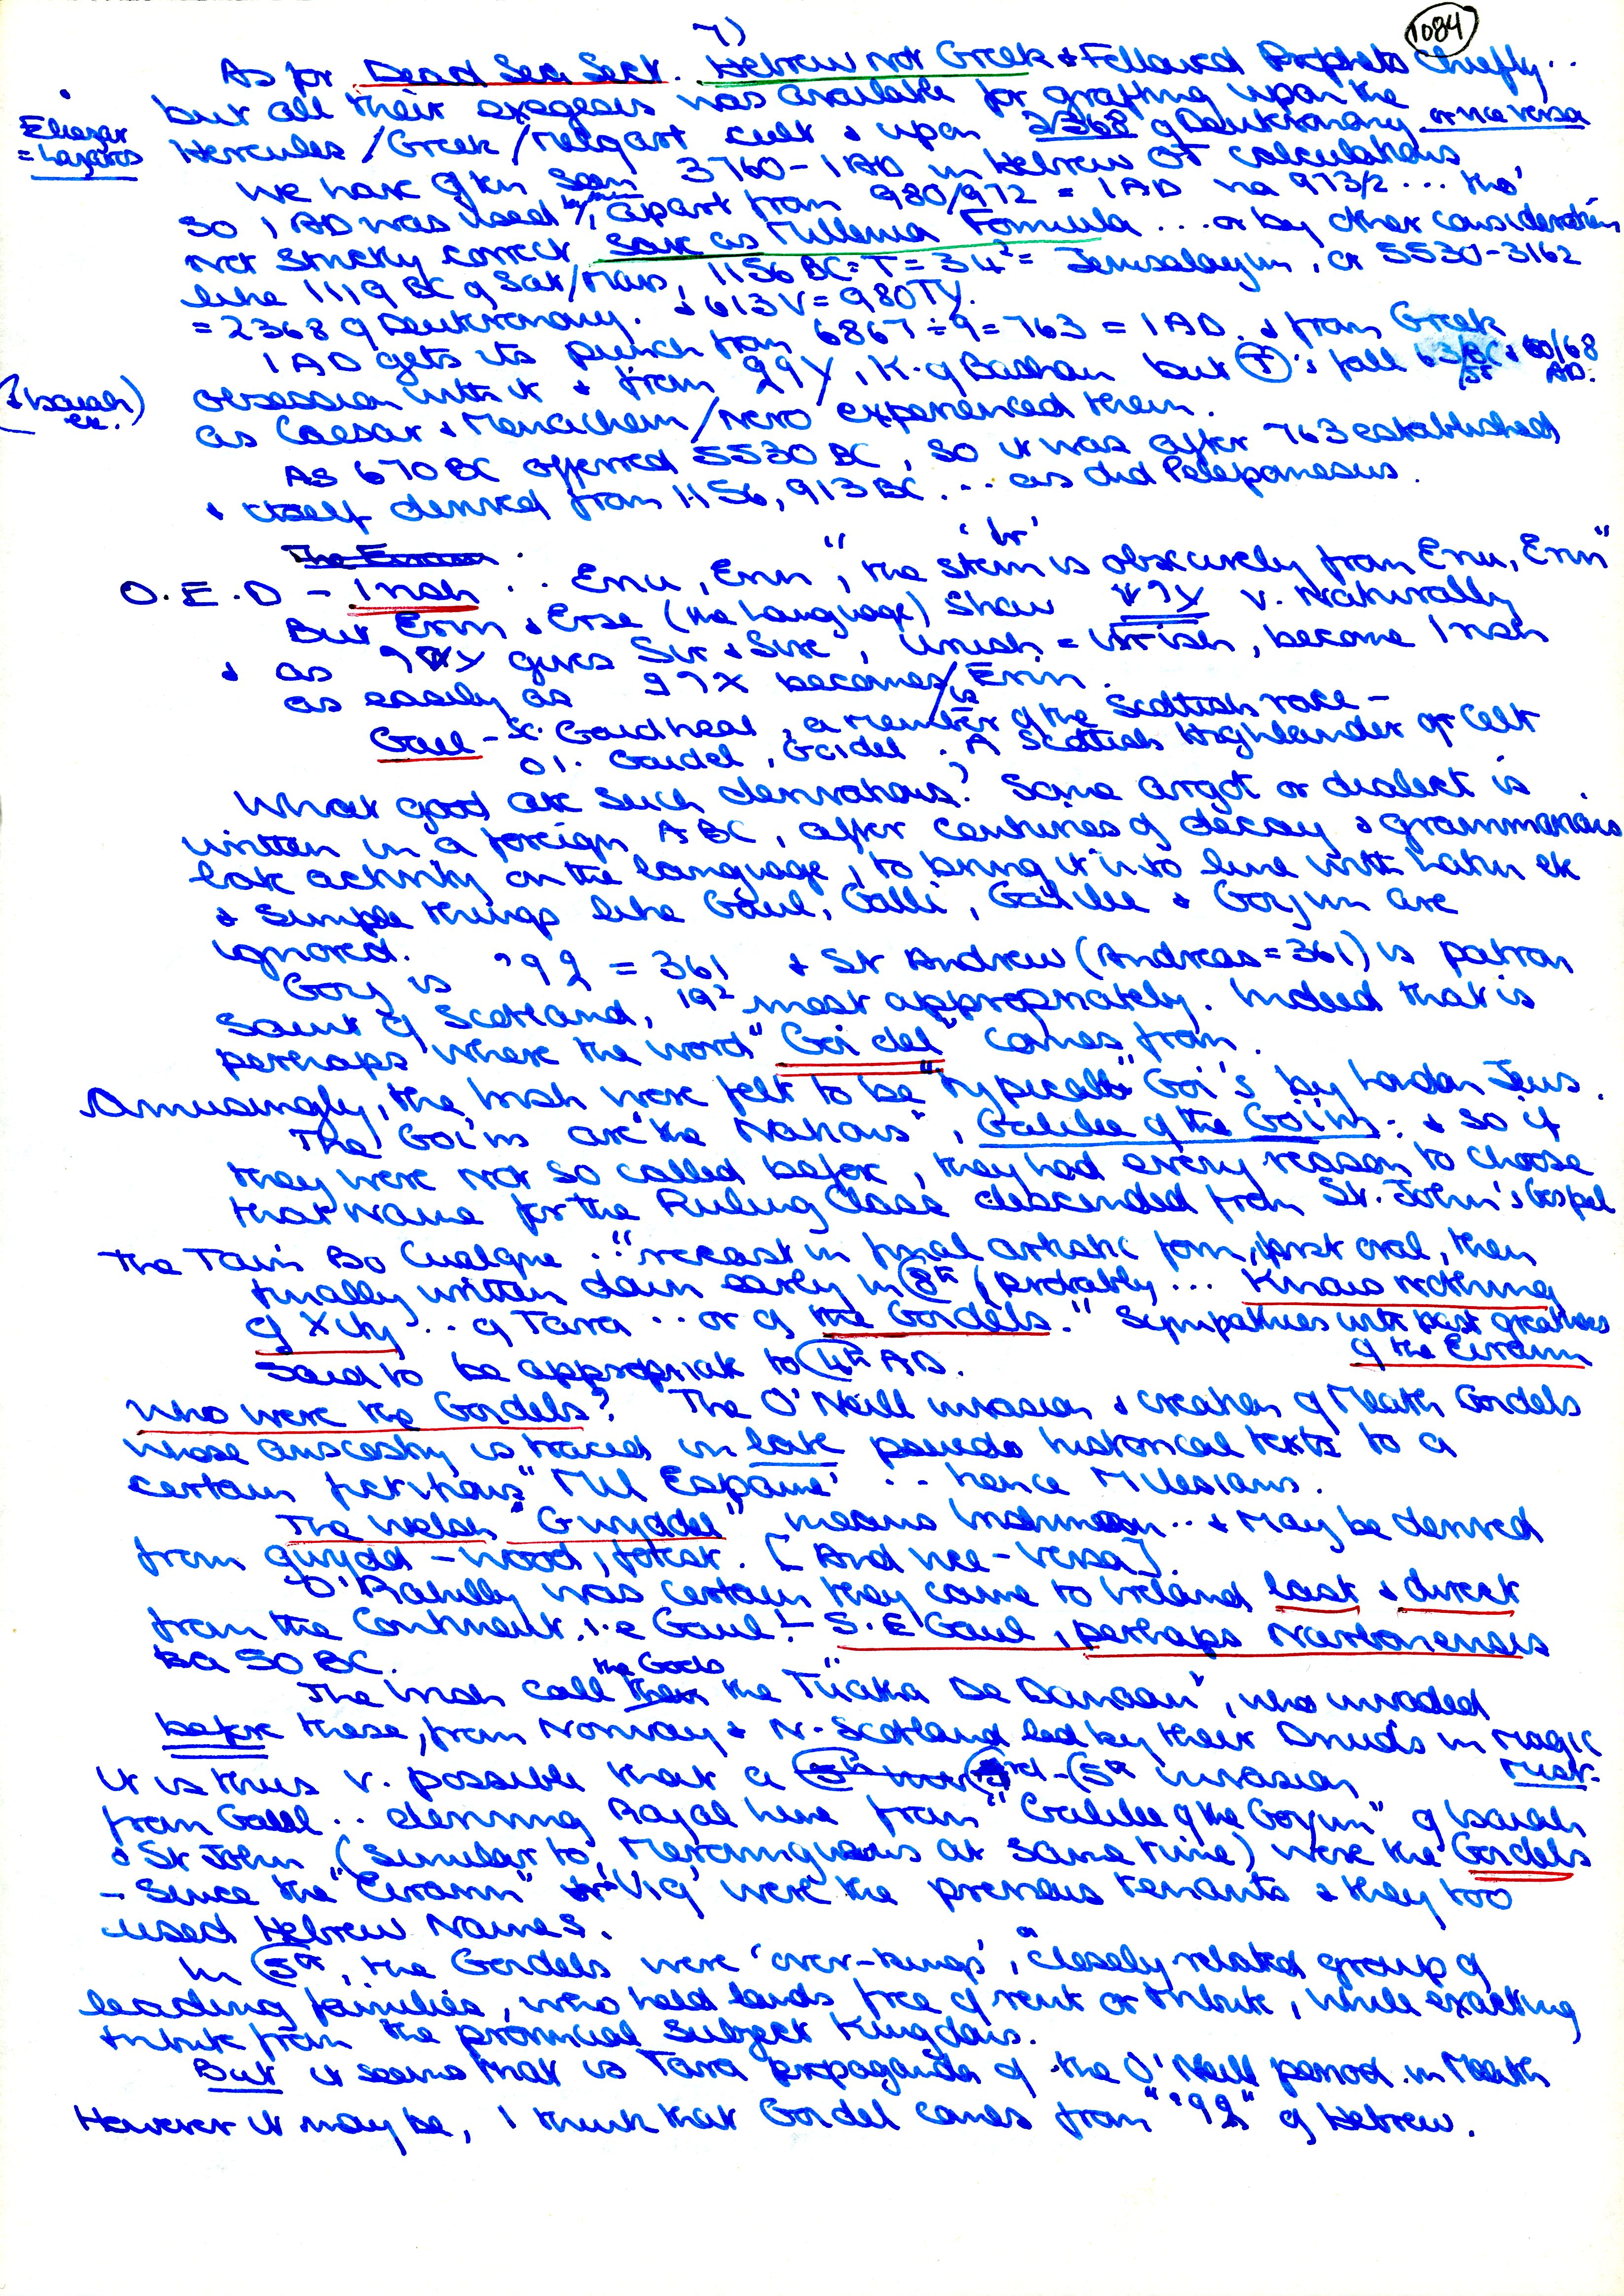 7)
1084
As for Dead Sea Sect. Hebrew not Greek & Followed Prophets Chiefly..
but all their exegesis was available for grafting upon the
Eliezar = Lazaros
Hercules / Greek / Melqart cult & upon 2368 of Deuteronomy or vice versa
We have often seen 3760 - 1 AD in Hebrew OT calculations
so 1 AD was used apart from 980/972 = 1 AD via 973/2 ... tho'
not strictly correct save as Millenia Formula ... or by other considerations
like 1119 BC of Sat/Mars, 1156 BC = T = 34² = Jerusalayim, or 5530-3162
= 2368 of Deuteronomy. & 613 V = 980 TY.
1 AD gets its punch from 6867 ÷ 9 = 763 = 1 AD. & from Greek
(& Isaiah etc.)
obsession with it & from 29Y, K. of Bashan but T's fall 63 BC & 60/68 AD.
as Caesar & Menachem / Nero experienced them.
As 670 BC offered 5530 BC, so it was after 763 established
& itself derived from 1156, 913 BC ... as did Peleponesus.
O.E.D - Irish .. Eriu, Erin, "the stem 'Ir' is obscurely from Eriu, Erin"
But Erin & Erse (the language) show v. Naturally
& as gives Sir & Sire, Urish = Irish, become Irish
as easily as becomes Erin.
Gael - Sc. Gaidheal, a member of the Scottish race -
OI. Gaidel, Goidel. A Scottish Highlander or Celt
What good are such derivations? Some argot or dialect is
written in a foreign ABC, after centuries of decay & grammarians
late activity on the language, to bring it into line with Latin etc
& simple things like Gaul, Galli, Galilee & Goyim are
ignored.
Goy is ?92 = 361 & St Andrew (Andreas = 361) is patron
saint of Scotland, 19² most appropriately. Indeed that is
perhaps where the word "Goi del" comes from.
Amusingly, the Irish were felt to be "typical" Goi's by London Jews.
The Goi'm are "the Nations", Galilee of the Goi'm: & so if
they were not so called before, they had every reason to choose
that name for the Ruling Class descended from St. John's Gospel
The Tain Bo Cualgne .. "recast in final artistic form, first oral, then
finally written down early in 8th, probably... Knows nothing
of Xity .. of Tara .. or of the Goidels." Sympathies with past greatness
of the Eirann
said to be appropriate to 4th AD.
Who were the Goidels? The O'Neill invasion & creation of Meath Goidels
whose anscestry is traced in late pseudo historical texts to a
certain fictitious "Mil Espaine" .. hence Milesians.
The Welsh "Gwyddel" means Irishman .. & may be derived
from gwydd - wood, forest. [And vice-versa].
O'Rahilly was certain they came to Ireland last & direct
from the Continent. i.e Gaul! - S.E Gaul, perhaps Narbonensis
Ba 50 BC.
The Irish call the Gods the "Tuatha De Danaan", who invaded
before these, from Norway & N. Scotland led by their Druids in Magic
Mist.
It is thus v. possible that a 3rd - 5th invasion
from Gaul .. deriving Royal line from "Galilee of the Goyim" of Isaiah
& St John (similar to Merovingians at same time) were the Goidels
- Since the "Eirann" were the previous tenants & they too
used Hebrew names.
In 5th, the Goidels were 'over-kings', a closely related group of
leading families, who held lands free of rent or tribute, while exacting
tribute from the provincial subject Kingdoms.
But it seems that is Tara propaganda of the O'Neill period in Meath
However it may be, I think that Goidel comes from "?92" of Hebrew.